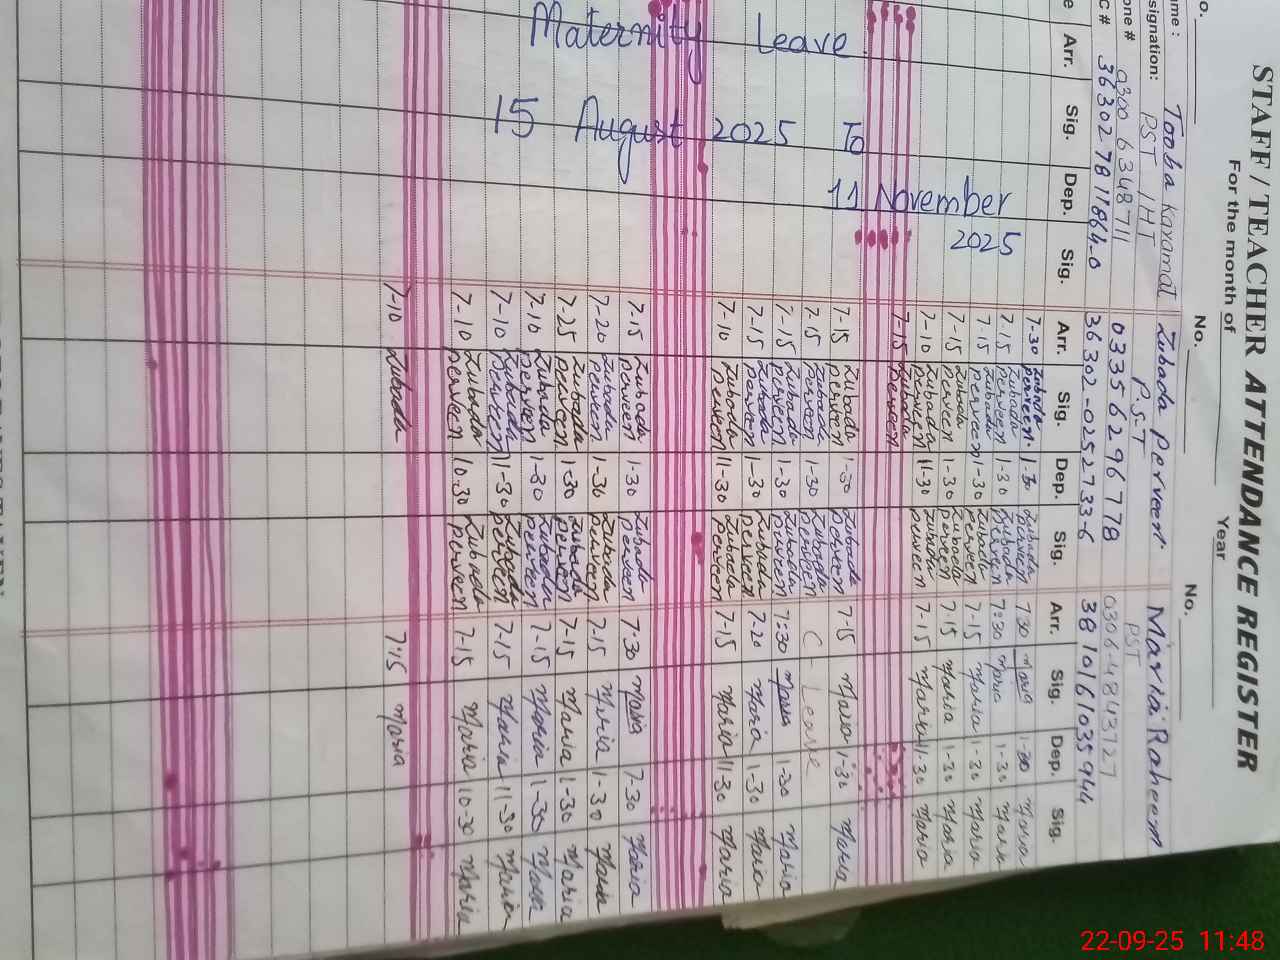 STAFF / TEACHER ATTENDANCE REGISTER
For the month of Year
No. No.
Tooba Karamat Zubada perveen. Maria Raheem
signation: PST IHT P.S.T PST
one # 0300 6348711 0335 6296778 0306-4843727
C# 36302 7811864-0 36302-0252733-6 38101 61035944
Arr. Sig. Dep. Sig. Arr. Sig. Dep. Sig. Arr. Sig. Dep. Sig.
7-30 Zubada perveen. 1-30 Zubada perveen 7:30 Maria 1-30 Maria
2025 7.15 Zubada perveen 1-30 Zubada perveen 7:30 Maria 1-30 Maria
11 November 7-15 Zubada perveen 1-30 Zubada perveen 7-15 Maria 1-30 Maria
7-15 Zubada perveen 1-30 Zubada perveen 7-15 Maria 1-30 Maria
7-10 Zubada perveen 11-30 Zubada perveen 7-15 Maria 11-30 Maria
7-15 Zubada perveen
To 7-15 Zubada perveen 1-30 Zubada perveen 7-15 Maria 1-30 Maria
7-15 Zubada perveen 1-30 Zubada perveen C-Leave
7-15 Zubada perveen 1-30 Zubada perveen 7:30 Maria 1-30 Maria
7-15 Zubada perveen 1-30 Zubada perveen 7-20 Maria 1-30 Maria
7-10 Zubada perveen 11-30 Zubada perveen 7-15 Maria 11-30 Maria
Maternity Leave
15 August 2025
7.15 Zubada perveen 1-30 Zubada perveen 7.30 Maria 7-30 Maria
7-20 Zubada perveen 1-30 Zubada perveen 7-15 Maria 1-30 Maria
7-25 Zubada perveen 1-30 Zubada perveen 7-15 Maria 1-30 Maria
7-10 Zubada perveen 1-30 Zubada perveen 7-15 Maria 1-30 Maria
7-10 Zubada perveen 11-30 Zubada perveen 7-15 Maria 11-30 Maria
7-10 Zubada perveen 10.30 Zubada perveen 7-15 Maria 10-30 Maria
7-10 Zubada 7:15 Maria
22-09-25 11:48